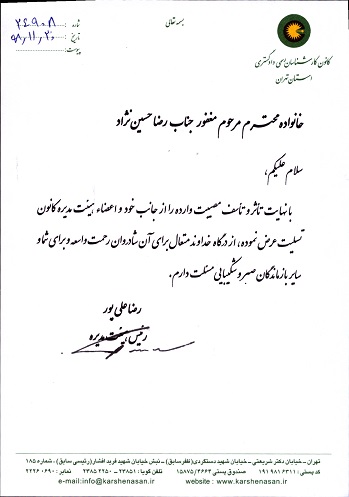 بسمه تعالی
شماره: ۲۶۹۰۸
تاریخ: ۹۸/۱۱/۲۰
پیوست:
کانون کارشناسان رسمی دادگستری
استان تهران
خانواده محترم مرحوم مغفور جناب رضا حسین نژاد
سلام علیکم،
با نهایت تأثر و تأسف مصیبت وارده را از جانب خود و اعضاء هیئت مدیره کانون
تسلیت عرض نموده، از درگاه خداوند متعال برای آن شادروان رحمت واسعه و برای شما و
سایر بازماندگان صبر و شکیبایی مسئلت دارم.
رضا علی پور
رئیس هیئت مدیره
تهران - خیابان دکتر شریعتی - خیابان شهید دستگردی (ظفر سابق) - نبش خیابان شهید فرید افشار (رئیسی سابق) - شماره ۱۸۵
کد پستی: ۱۹۱۹۸۱۶۳۱۱ صندوق پستی ۱۵۸۷۵/۴۶۶۳ تلفن گویا: ۲۳۸۵۱ - ۲۲۵۰ ۲۳۸۵ نمابر: ۰۶۹۰ ۲۲۲۶
e-mail:info@karshenasan.ir website: www.karshenasan.ir